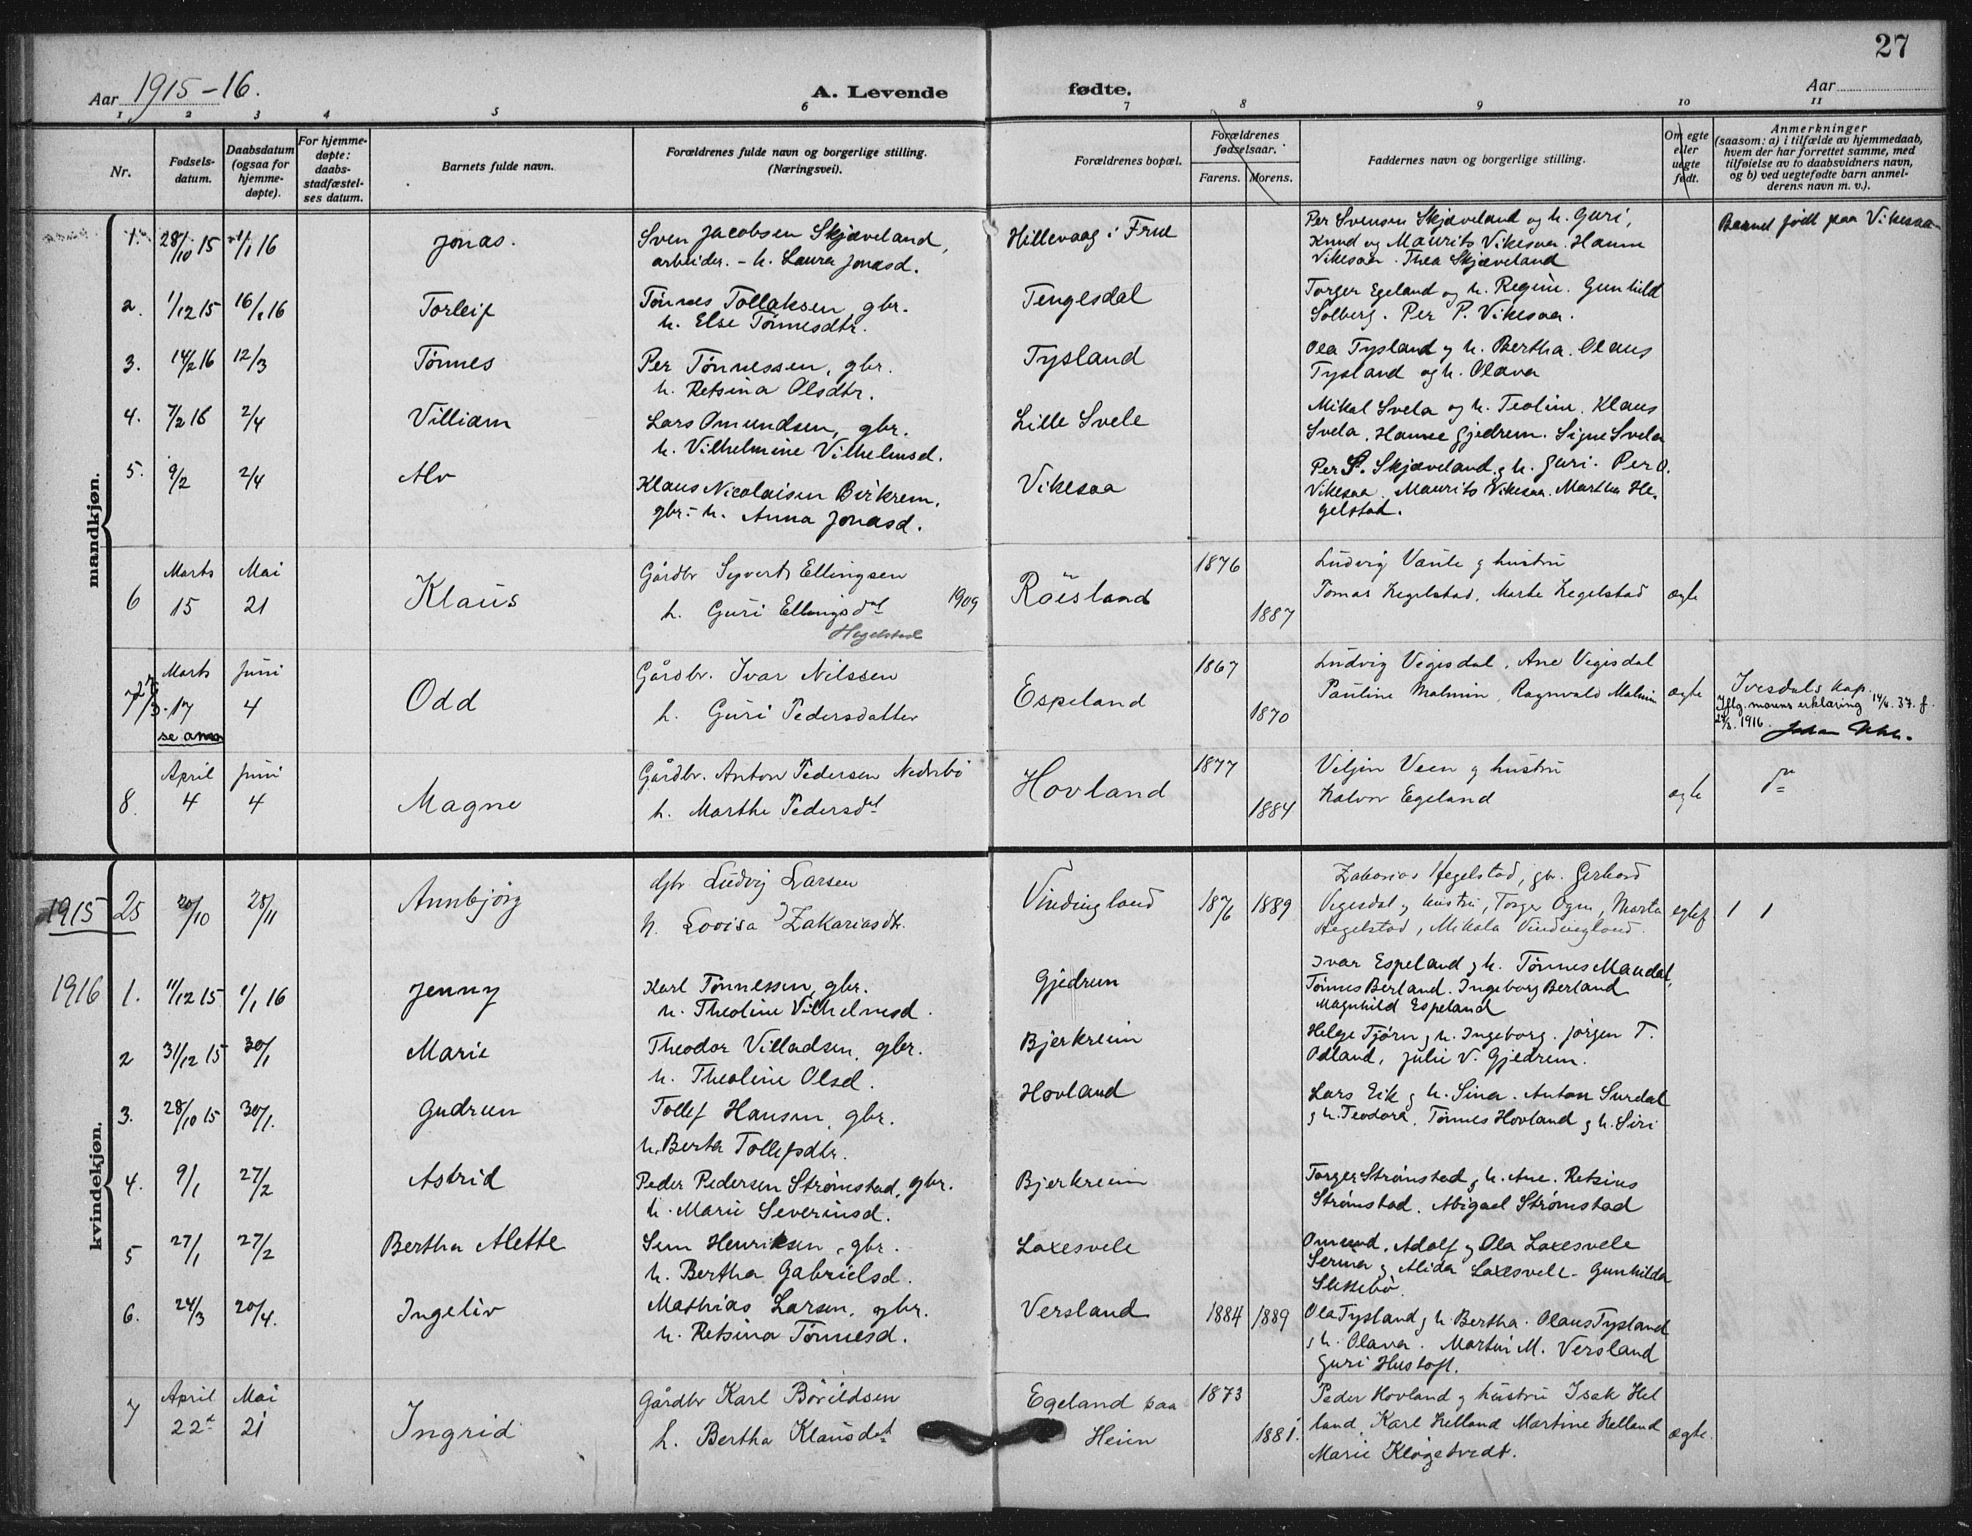 27
Aar 1915-16.
A. Levende fødte.
Aar
1 2 3 4 5 6 7 8 9 10 11
Nr.
Fødsels-
datum.
Daabsdatum
(ogsaa for
hjemme-
døpte).
For hjemme-
døpte:
daabs-
stadfæstel-
ses datum.
Barnets fulde navn.
Forældrenes fulde navn og borgerlige stilling.
(Næringsvei).
Forældrenes bopæl.
Forældrenes
fødselsaar.
Farens. Morens.
Faddernes navn og borgerlige stilling.
Om egte
eller
uegte
født.
Anmerkninger
(saasom: a) i tilfælde av hjemmedaab,
hvem der har forrettet samme, med
tilføielse av to daabsvidners navn,
og b) ved uegtefødte barn anmel-
derens navn m. v.).
mandkjøn.
1. 28/10 15 1/1 16 Jonas.
Sven Jacobsen Skjæveland,
arbeider. - h. Laura Jonasd.
Hillevaag i Frue
Per Svensen Skjæveland og h. Guri,
Knud og Maurits Vikesaa. Hanna
Vikesaa. Thea Skjæveland
Barnet født paa Vikesaa
2. 1/12 15 16/1 16 Torleif
Tønnes Tollaksen, gbr.
h. Else Tønnesdtr.
Tengesdal
Torger Egeland og h. Regine. Gunhild
Solberg. Per P. Vikesaa.
3. 14/2 16 12/3 Tønnes
Per Tønnessen, gbr.
h. Retsina Olsdtr.
Tysland
Ola Tysland og h. Bertha. Olaus
Tysland og h. Olava
4. 7/2 16 2/4 Villiam
Lars Omundsen, gbr.
h. Vilhelmine Vilhelmsd.
Lille Svele
Mikal Svela og h. Teoline. Klaus
Svela. Hanne Gjedrem. Signe Svela
5. 9/2 2/4 Alv
Klaus Nicolaisen Birkrem,
gbr. - h. Anna Jonasd.
Vikesaa
Per S. Skjæveland og h. Guri. Per O.
Vikesaa. Maurits Vikesaa. Martha He-
gelstad.
6 Marts 15 Mai 21 Klaus
Gårdbr Syvert Ellingsen
h. Guri Ellingsdat 1909
Hegelstad
Røisland
1876
1887
Ludvig Vaule og hustru
Tomas Hegelstad, Marte Hegelstad
ægte
7 Marts 17 Juni 4 Odd
27/3
se anm
Gårdbr. Ivar Nilssen
h. Guri Pedersdatter
Espeland
1867
1870
Ludvig Vegisdal, Ane Vegisdal
Pauline Malmin, Ragnvald Malmin
ægte
Ivesdals kap.
Iflg. morens erklæring 14/6. 37. f.
27/3. 1916.
8. April 4 Juni 4 Magne
Gårdbr. Anton Pedersen Nedrebø
h. Marthe Pedersdat
Hovland
1877
1884
Veljin Veen og hustru
Halvor Egeland
ægte
do
kvindekjøn.
1915 25 20/10 28/11 Annbjørg
Gbr Ludvig Larsen
h. Lovisa Zakariasdtr.
Vindingland
1876 1889
Zakarias Hegelstad, gbr. Gerhard
Vegesdal og hustru, Torger Ogn, Marta
Hegelstad, Mikala Vindingland.
egtef
1 1
1916 1. 11/12 15 1/1 16 Jenny
Karl Tønnessen, gbr.
h. Theoline Vilhelmsd.
Gjedrem
Ivar Espeland og h. Tønnes Maudal,
Tønnes Berland. Ingeborg Berland
Magnhild Espeland
2 31/12 15 30/1 Marie
Theodor Villadsen, gbr.
h. Theoline Olsd.
Bjerkreim
Helge Tjørn og h. Ingeborg. Jørgen T.
Odland, Julie V. Gjedrem.
3. 28/10 15 30/1. Gudrun
Tollef Hansen, gbr.
h. Berta Tollefsdtr.
Hovland
Lars Eik og h. Sina. Anton Surdal
og h. Teodora. Tønnes Hovland og h. Siri
4. 9/1 27/2 Astrid
Peder Pedersen Strømstad, gbr.
h. Marie Severinsd.
Bjerkreim
Torger Strømstad og h. Ane. Retsius
Strømstad. Abigael Strømstad
5 27/1 27/2 Bertha Alette
Sem Henriksen, gbr.
h. Bertha Gabrielsd.
Laxesvele
Omund, Adolf og Ola Laxesvele
Serina og Alida Laxesvele. Gunhilda
Slettebø.
6. 24/3 20/4. Ingeliv
Mathias Larsen, gbr.
h. Retsina Tønnesd.
Versland
1884 1889
Ola Tysland og h. Bertha. Olaus Tysland
og h. Olava. Martin M. Versland
Guri Hustoft.
7 April 22 Mai 21 Ingrid
Gårdbr Karl Børildsen
h. Bertha Klausdat
Egeland paa
Heien
1873
1881.
Peder Hovland og hustru Isak Hel
land, Karl Helland Martine Helland
Marie Kløgetvedt.
ægte.